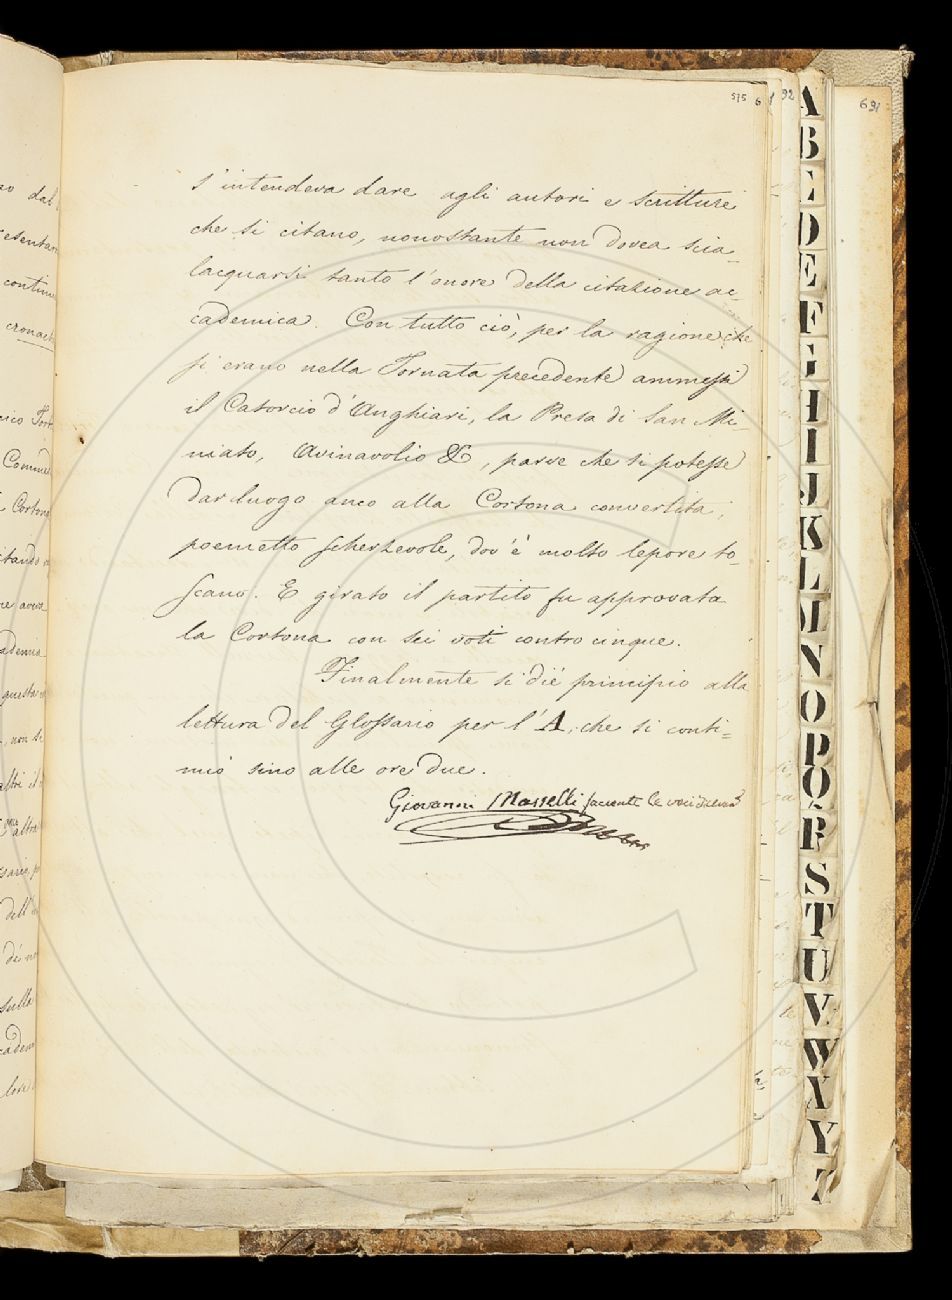 575
s'intendeva dare agli autori e scritture
che si citano, nonostante non dovea scia-
lacquarsi tanto l'onore della citazione ac-
cademica. Con tutto ciò, per la ragione che
si erano nella Tornata precedente ammessi
il Catorcio d'Anghiari, la Presa di San Mi-
niato, Avinavolio &, parve che si potesse
dar luogo anco alla Cortona convertita,
poemetto scherzevole, dov'è molto lepore to-
scano. E girato il partito fu approvata
la Cortona con sei voti contro cinque.
Finalmente si diè principio alla
lettura del Glossario per l'A, che si conti-
nuò sino alle ore due.
Giovanni Masselli facente le veci
92
691
A
B
C
D
E
F
G
H
I
J
K
L
M
N
O
P
Q
R
S
T
U
V
W
X
Y
Z
dal
continu
Commed
Corton
questa
non si
altri il
altra
dell'
sulla